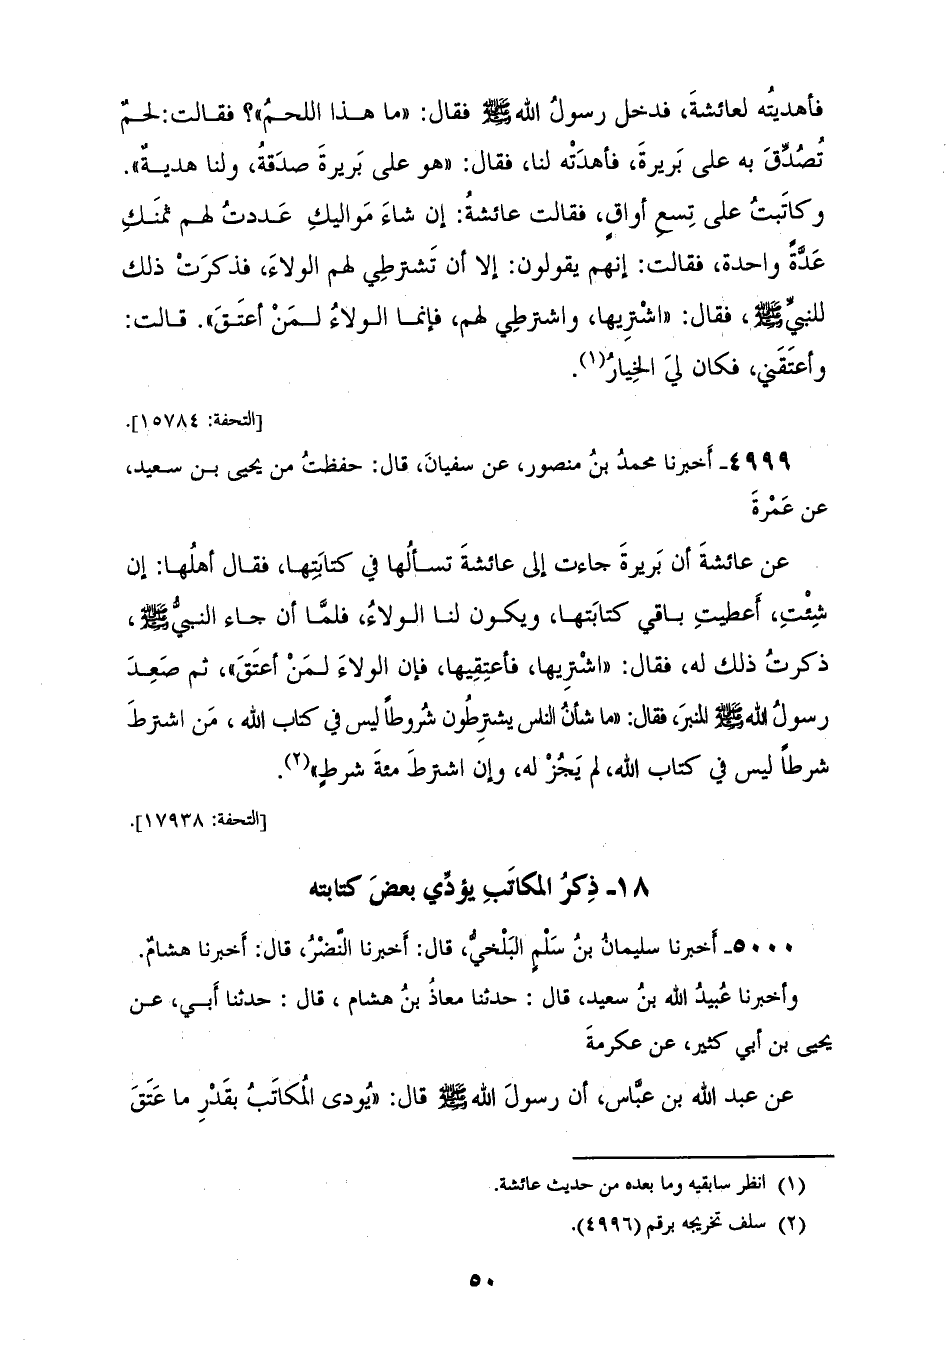 فأهديتُه لعائشةَ، فدخل رسولُ الله ﷺ فقال: «ما هذا اللحمُ»؟ فقالت: لحمٌ
تُصُدِّقَ به على بَريرةَ، فأهدَتْه لنا، فقال: «هو على بَريرةَ صدَقةُ، ولنا هديةٌ».
وكاتَبتُ على تِسعِ أواقٍ، فقالت عائشةُ: إن شاءَ مَواليكِ عَددتُ لهم ثمنَكِ
عَدَّةً واحدة، فقالت: إنهم يقولون: إلا أن تَشترطِي لهم الولاءَ، فذكرَتْ ذلك
للنبيِّ ﷺ، فقال: «اشْتِريها، واشترطِي لهم، فإنما الولاءُ لمَنْ أعتَقَ». قالت:
وأعتَقَني، فكان ليَ الخِيارُ(١).
[التحفة: ١٥٧٨٤].
٤٩٩٩ـ أَخبرنا محمدُ بنُ منصور، عن سفيانَ، قال: حفظتُ من يحيى بن سعيد،
عن عَمْرةَ
عن عائشةَ أن بَريرةَ جاءت إلى عائشةَ تسألُها في كتابَتِها، فقال أهلُها: إن
شِئْتِ، أَعطيتِ باقي كتابَتها، ويكون لنا الولاءُ، فلمَّا أن جاء النبيُّ ﷺ،
ذكرتُ ذلك له، فقال: «اشْتِريها، فأَعتِقِيها، فإن الولاءَ لمَنْ أعتَقَ»، ثم صَعِدَ
رسولُ الله ﷺ المنبرَ، فقال: «ما شأنُ الناس يشترِطُون شُروطاً ليس في كتاب الله، مَن اشترطَ
شرطاً ليس في كتاب الله، لم يَجُزْ له، وإن اشترطَ مئةَ شرطٍ»(٢).
[التحفة: ١٧٩٣٨].
١٨ـ ذِكرُ المكاتَبِ يؤدِّي بعضَ كتابته
٥٠٠٠ـ أَخبرنا سليمانُ بنُ سَلْمٍ البَلْخيُّ، قال: أَخبرنا النَّضْرُ، قال: أَخبرنا هشامٌ.
وأَخبرنا عُبيدُ الله بنُ سعيد، قال: حدثنا معاذُ بنُ هشام، قال: حدثنا أَبي، عن
يحيى بن أبي كثير، عن عكرمةَ
عن عبد الله بن عبَّاس، أن رسولَ الله ﷺ قال: «يُودى المُكاتَبُ بقَدْرِ ما عَتَقَ
(١) انظر سابقيه وما بعده من حديث عائشة.
(٢) سلف تخريجه برقم (٤٩٩٦).
٥٠